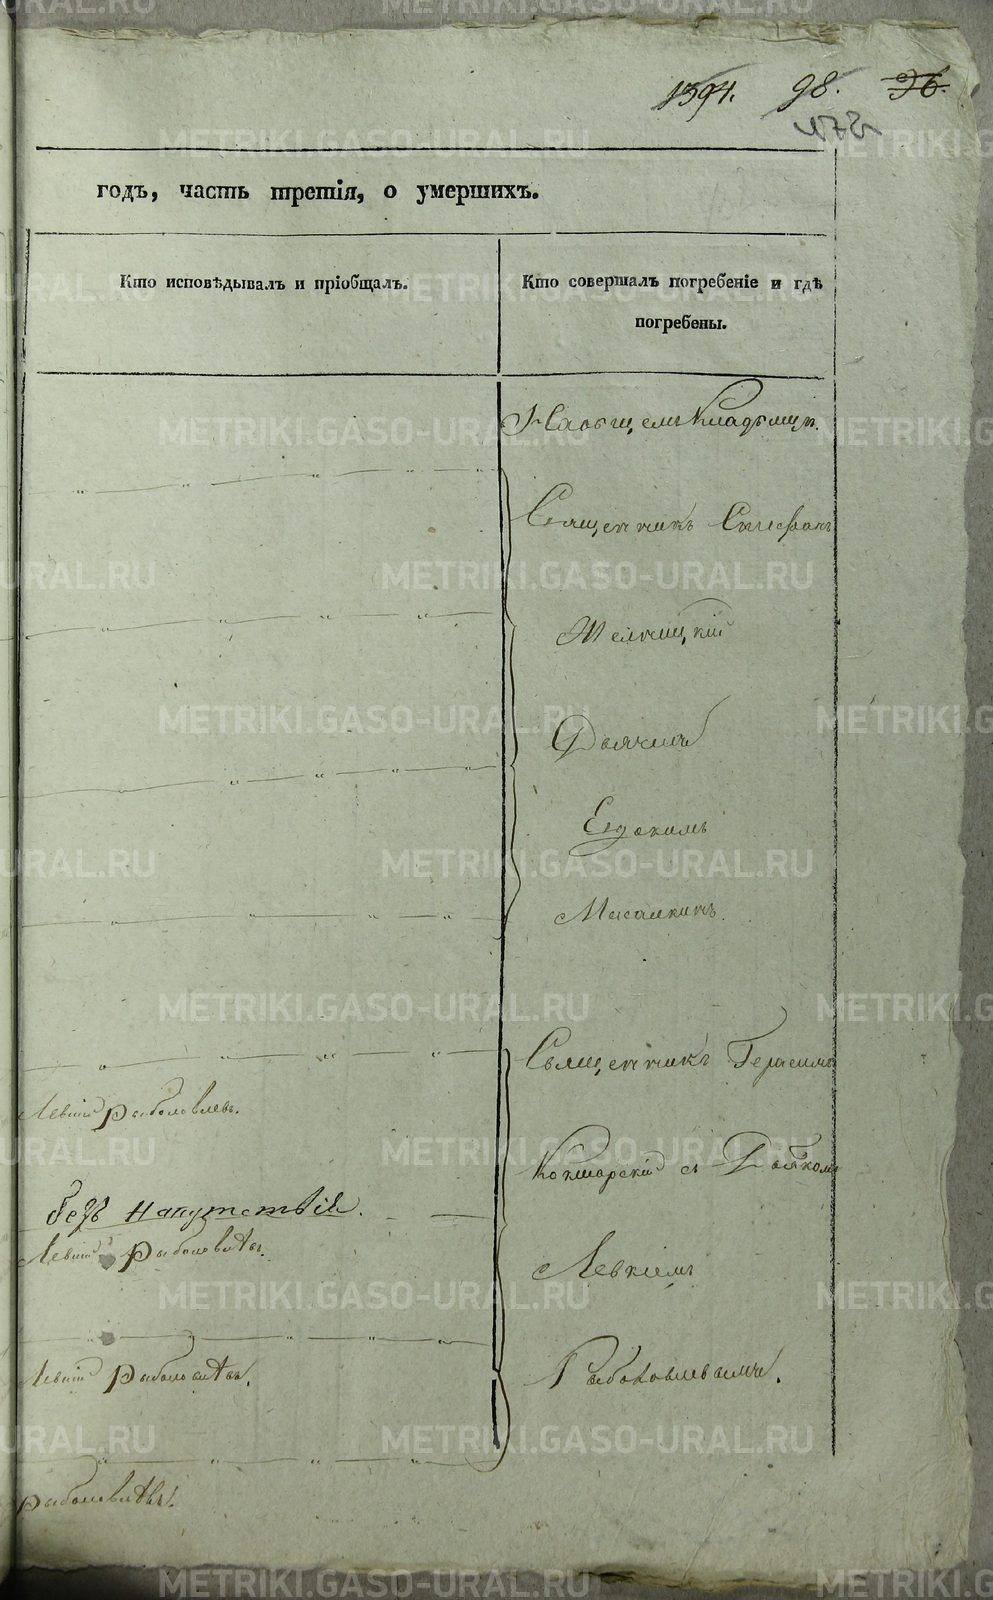 1394. 98. 96.
годъ, часть третія, о умершихъ.
Кто исповѣдывалъ и пріобщалъ.
Кто совершалъ погребеніе и гдѣ
погребены.
На общемъ Кладбищѣ.
Священникъ Стефанъ
Дьячекъ
Евдокимъ
Священникъ Герасимъ
Левкій Рыболовлевъ.
Кокшарскій съ Дьякомъ
безъ напутствія.
Левкій Рыболовлевъ.
Левкіемъ
Левкій Рыболовлевъ.
Рыболовлевымъ.
Рыболовлевъ.
METRIKI.GASO-URAL.RU